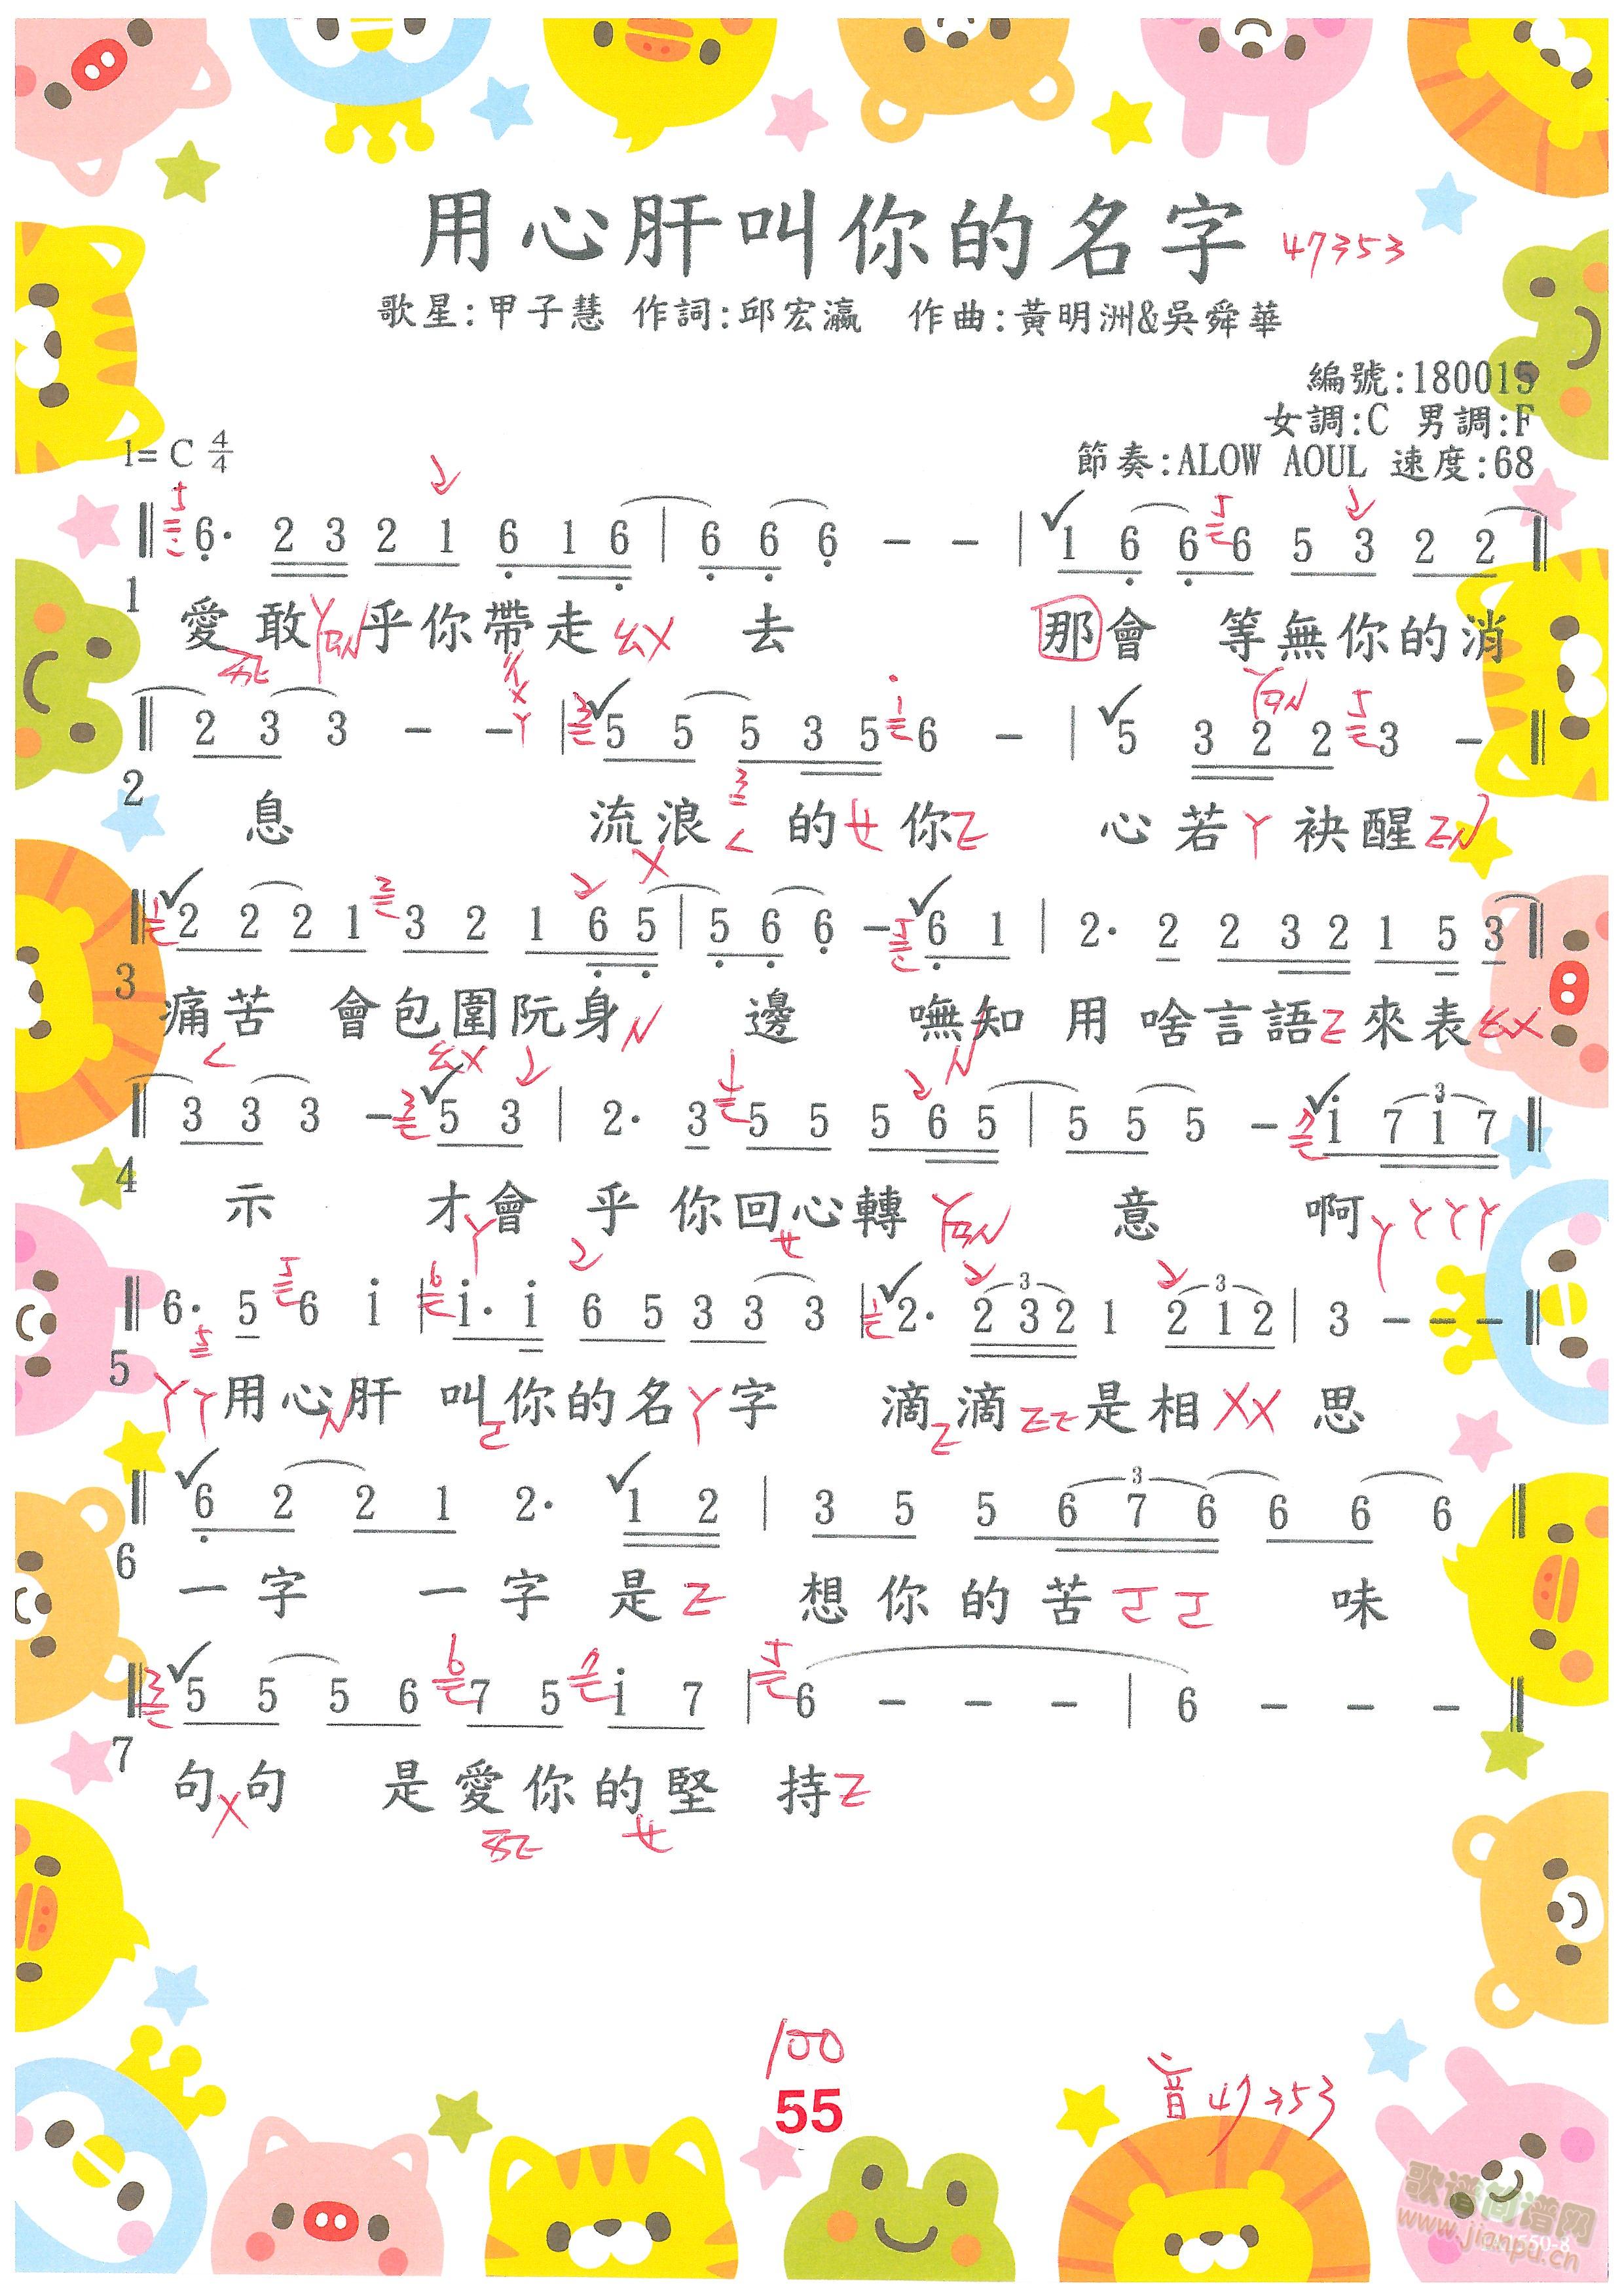 用心肝叫你的名字 47353
歌星:甲子慧 作詞:邱宏瀛 作曲:黃明洲&吳舜華
編號:180015
女調:C 男調:F
1=C 4/4
節奏:ALOW AOUL 速度:68
6· 2 3 2 1 6 1 6 | 6 6 6 - - | 1 6 6 6 5 3 2 2
1 愛敢乎你帶走 去 那會 等無你的消
2 3 3 - - | 5 5 5 3 5 6 - | 5 3 2 2 3 -
2 息 流浪 的 你 心若 袂醒
2 2 2 1 3 2 1 6 5 | 5 6 6 - 6 1 | 2· 2 2 3 2 1 5 3
3 痛苦 會包圍阮身 邊 嘸知 用 啥言語 來表
3 3 3 - 5 3 | 2· 3 5 5 5 6 5 | 5 5 5 - i 7 1 7
4 示 才會 乎 你回心轉 意 啊
6· 5 6 i | i· i 6 5 3 3 3 | 2· 2 3 2 1 2 1 2 | 3 - - -
5 用心肝 叫你的名 字 滴滴 是相 思
6 2 2 1 2· 1 2 | 3 5 5 6 7 6 6 6 6
6 一字 一字 是 想你的苦 味
5 5 5 6 7 5 i 7 | 6 - - - | 6 - - -
7 句句 是愛你的堅 持
100
55
音47353
歌谱简谱网
www.jianpu.cn